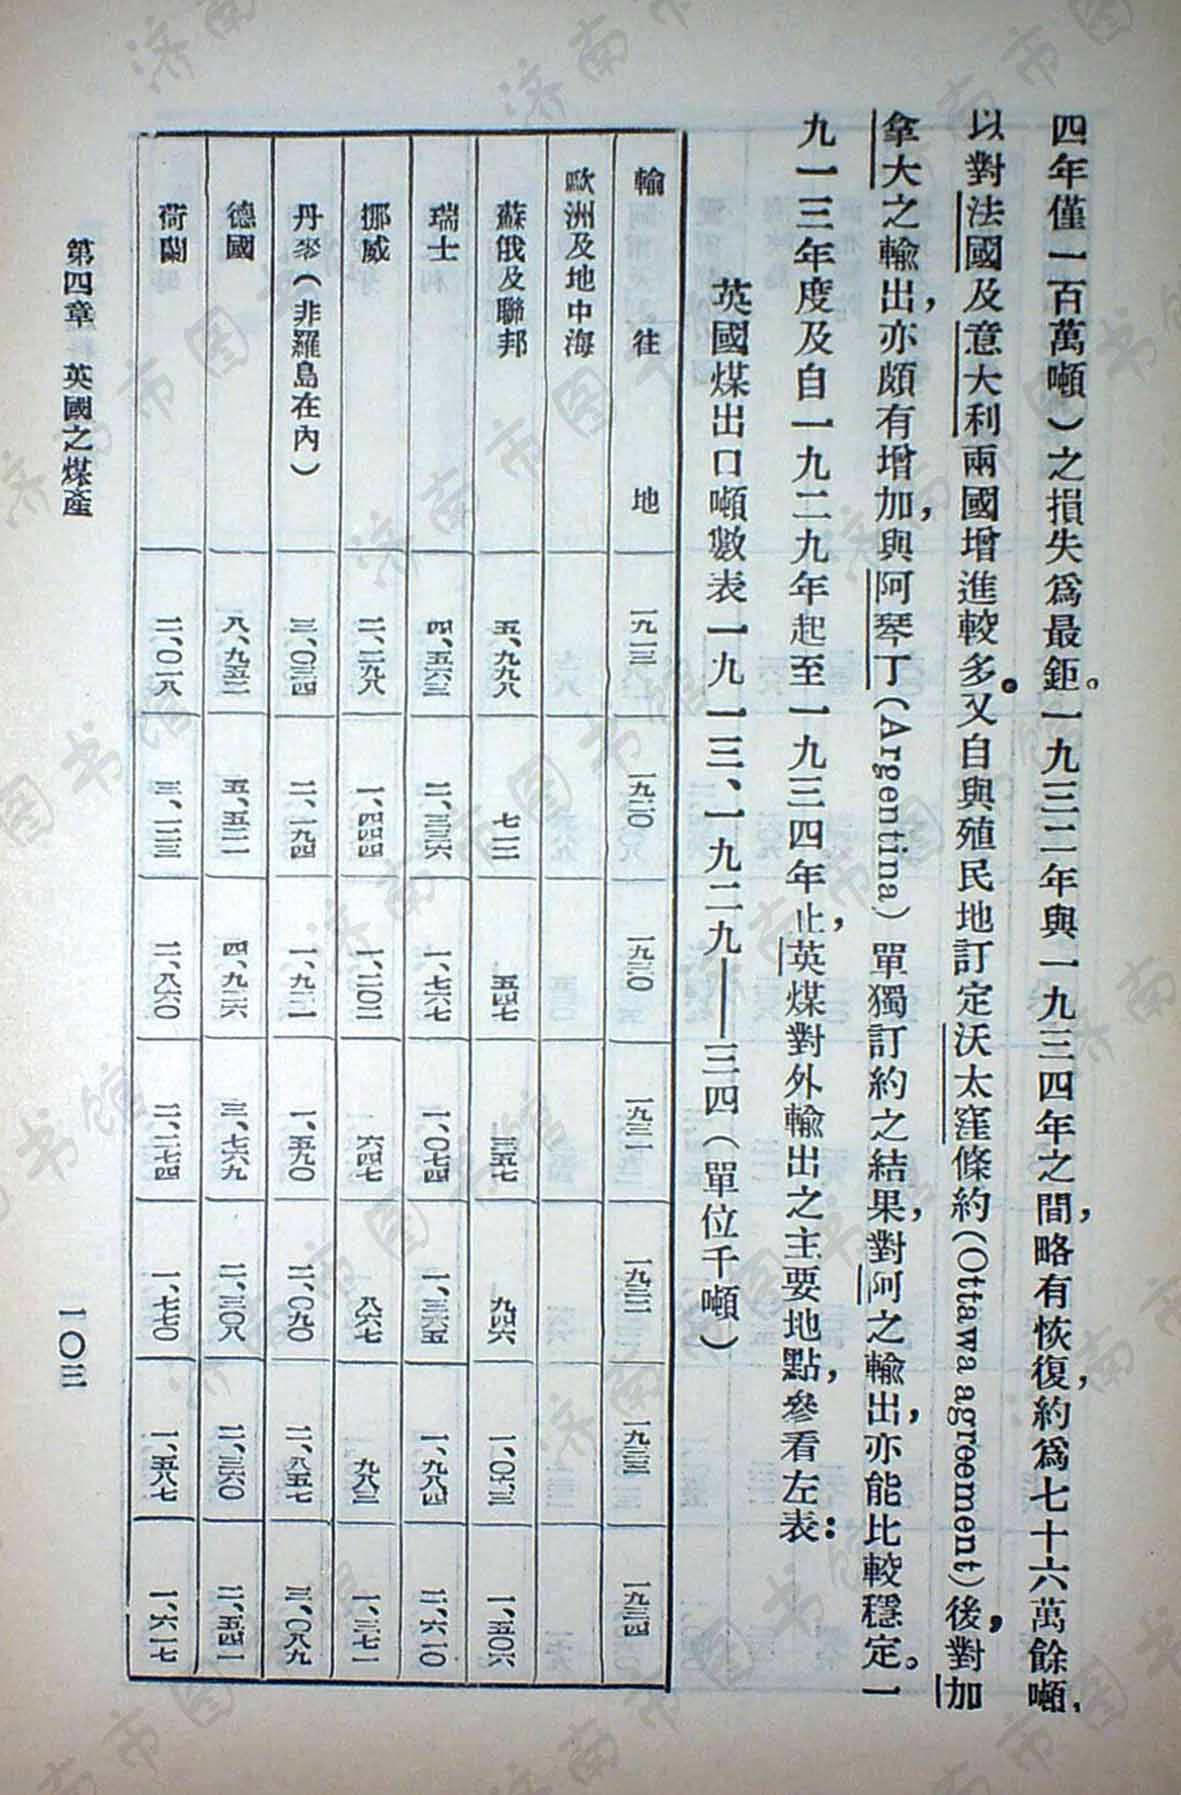 四年僅一百萬噸)之損失爲最鉅。一九三二年與一九三四年之間,略有恢復,約爲七十六萬餘噸,
以對法國及意大利兩國增進較多。又自與殖民地訂定沃太窪條約(Ottawa agreement)後,對加
拿大之輸出,亦頗有增加,與阿琴丁(Argentina)單獨訂約之結果,對阿之輸出,亦能比較穩定。一
九一三年度及自一九二九年起至一九三四年止,英煤對外輸出之主要地點,參看左表:
英國煤出口噸數表一九一三、一九二九——三四(單位千噸)
輸往地 一九一三 一九三一 一九三二 一九三三 一九三四
歐洲及地中海
蘇俄及聯邦 五、九九八 七一二 五四七 三五七 九四六 一、五〇六
瑞士 四、五六三 二、三三六 一、七六七 一、〇七四 一、三六五 一、九八四 二、六一〇
挪威 二、二九八 一、四四四 一、二〇二 六四七 八六七 九八三 一、三七一
丹麥(非羅島在內) 三、〇三四 二、一九四 一、九二一 一、五九〇 二、〇九〇 二、八五七 三、〇八九
德國 八、九五二 五、五二一 四、九二六 三、七六九 二、三〇八 二、三六〇 二、五四一
荷蘭 二、〇一八 三、一二三 二、八六〇 二、二七四 一、七七〇 一、五八七 一、六一七
第四章 英國之煤產
一〇三
济南市图书馆